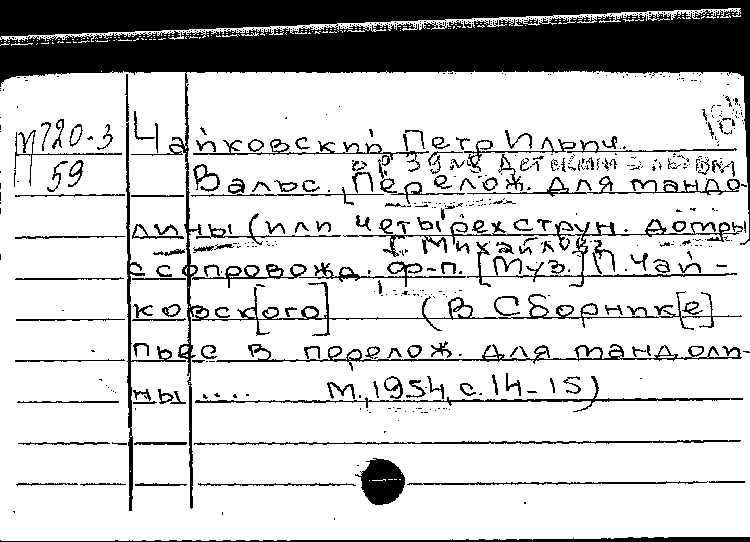 П720-3 Чайковский, Петр Ильич. 16
59
ор 39 №8 Детский альбом
Вальс. Перелож. для мандо-
лины (или четырехструн. домры)
Г. Михайлова
с сопровожд. ф-п. [Муз.] П. Чай-
ковск[ого] (В Сборник[е]
пьес в перелож. для мандоли-
ны .... М., 1954, с. 14-15)